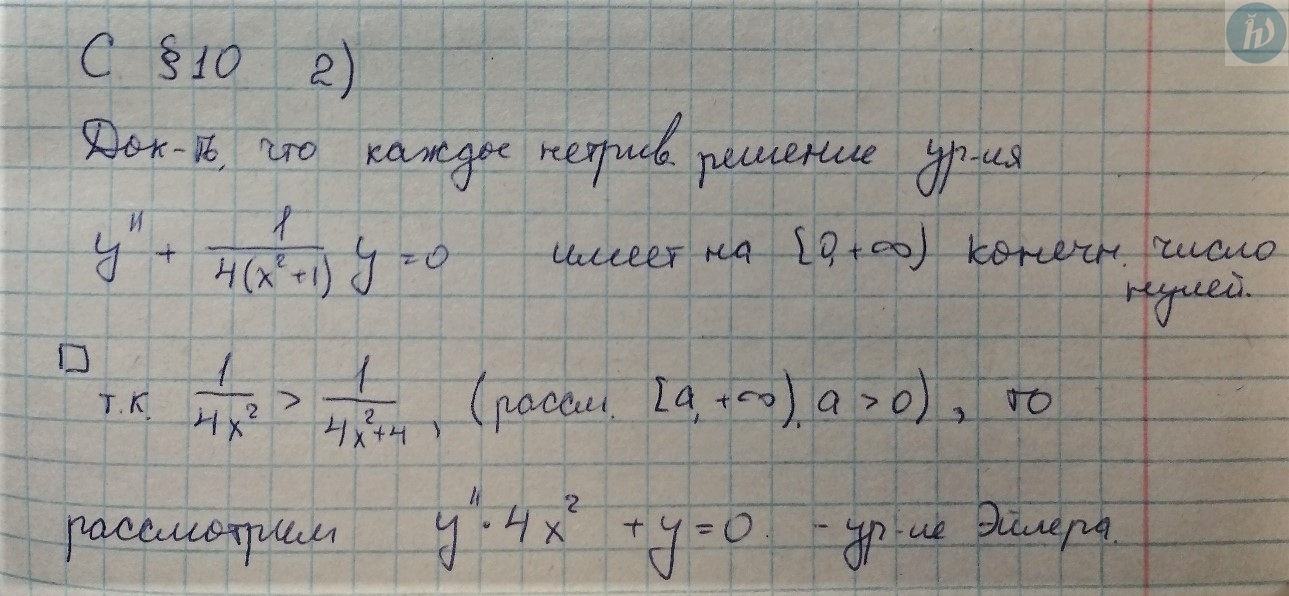 С §10 2)
Док-ть, что каждое нетрив. решение ур-ия
y'' + 1/(4(x²+1)) y = 0 имеет на [0, +∞) конечн. число
нулей.
□
т.к. 1/(4x²) > 1/(4x²+4), (рассм. [a, +∞), a > 0), то
рассмотрим y''·4x² + y = 0. - ур-ие Эйлера.